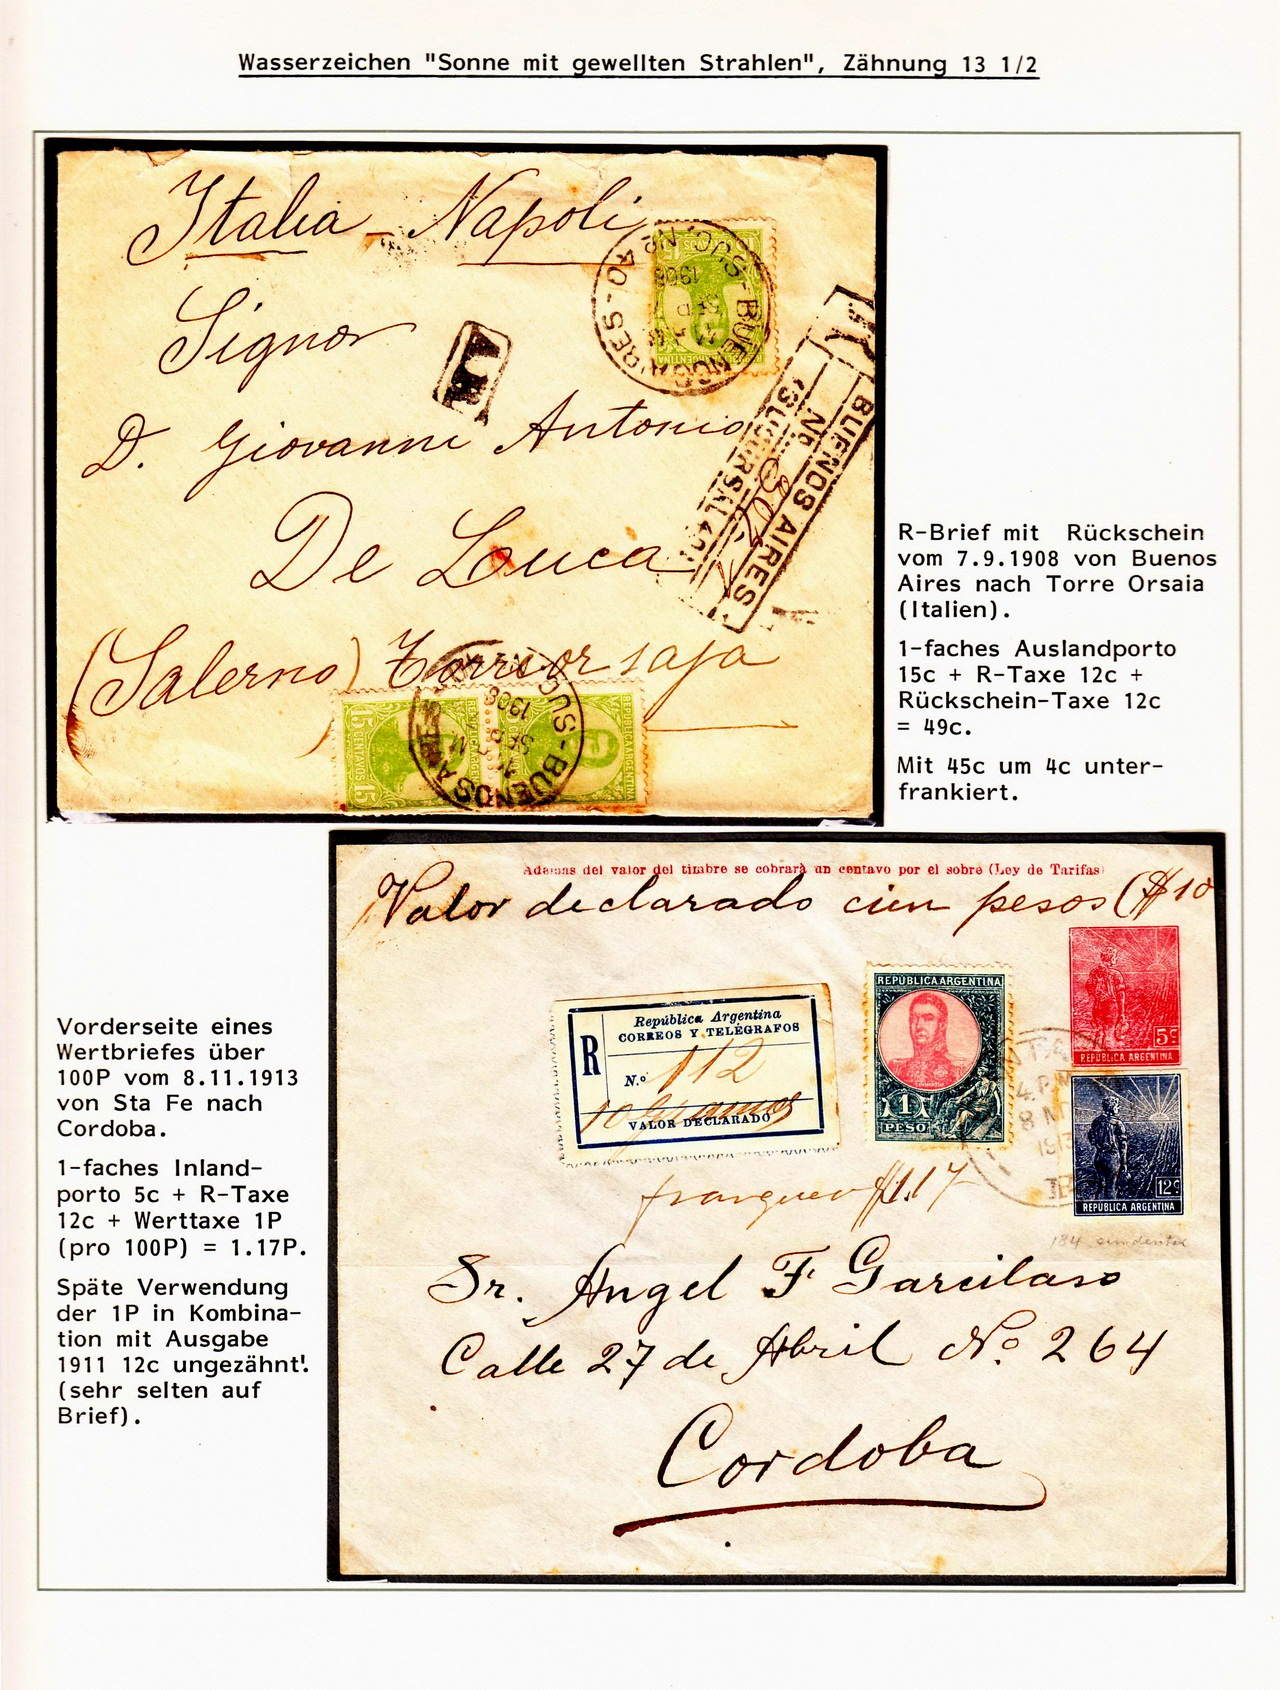 Wasserzeichen "Sonne mit gewellten Strahlen", Zähnung 13 1/2
Italia - Napoli
Signor
D. Giovanni Antonio
De Luca
(Salerno) Torreorsaja
15 CENTAVOS
REPUBLICA ARGENTINA
SUC. Nº 40. - BUENOS AIRES -
1908
R
BUENOS AIRES
No
(SUCURSAL 40)
15 CENTAVOS 15
REPUBLICA ARGENTINA
REPUBLICA ARGENTINA
SUC. - BUENOS AIRES
1908
R-Brief mit Rückschein
vom 7.9.1908 von Buenos
Aires nach Torre Orsaia
(Italien).
1-faches Auslandporto
15c + R-Taxe 12c +
Rückschein-Taxe 12c
= 49c.
Mit 45c um 4c unter-
frankiert.
Ademas del valor del timbre se cobrará un centavo por el sobre (Ley de Tarifas)
Valor declarado cien pesos ($ 10
República Argentina
CORREOS Y TELÉGRAFOS
R
N.º 112
10 Gramos
VALOR DECLARADO
REPÚBLICA ARGENTINA
1
PESO
5c
REPUBLICA ARGENTINA
4 PM
8 N
1913
12c
REPUBLICA ARGENTINA
franqueo $1.17
184
Sr. Angel F Garcilaso
Calle 27 de Abril Nº 264
Cordoba
Vorderseite eines
Wertbriefes über
100P vom 8.11.1913
von Sta Fe nach
Cordoba.
1-faches Inland-
porto 5c + R-Taxe
12c + Werttaxe 1P
(pro 100P) = 1.17P.
Späte Verwendung
der 1P in Kombina-
tion mit Ausgabe
1911 12c ungezähnt!
(sehr selten auf
Brief).